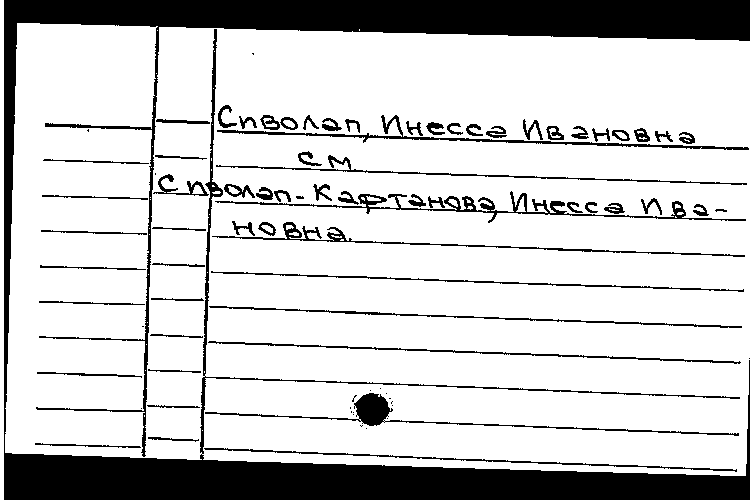 Сиволап, Инесса Ивановна
см
Сиволап-Кафтанова, Инесса Ива-
новна.